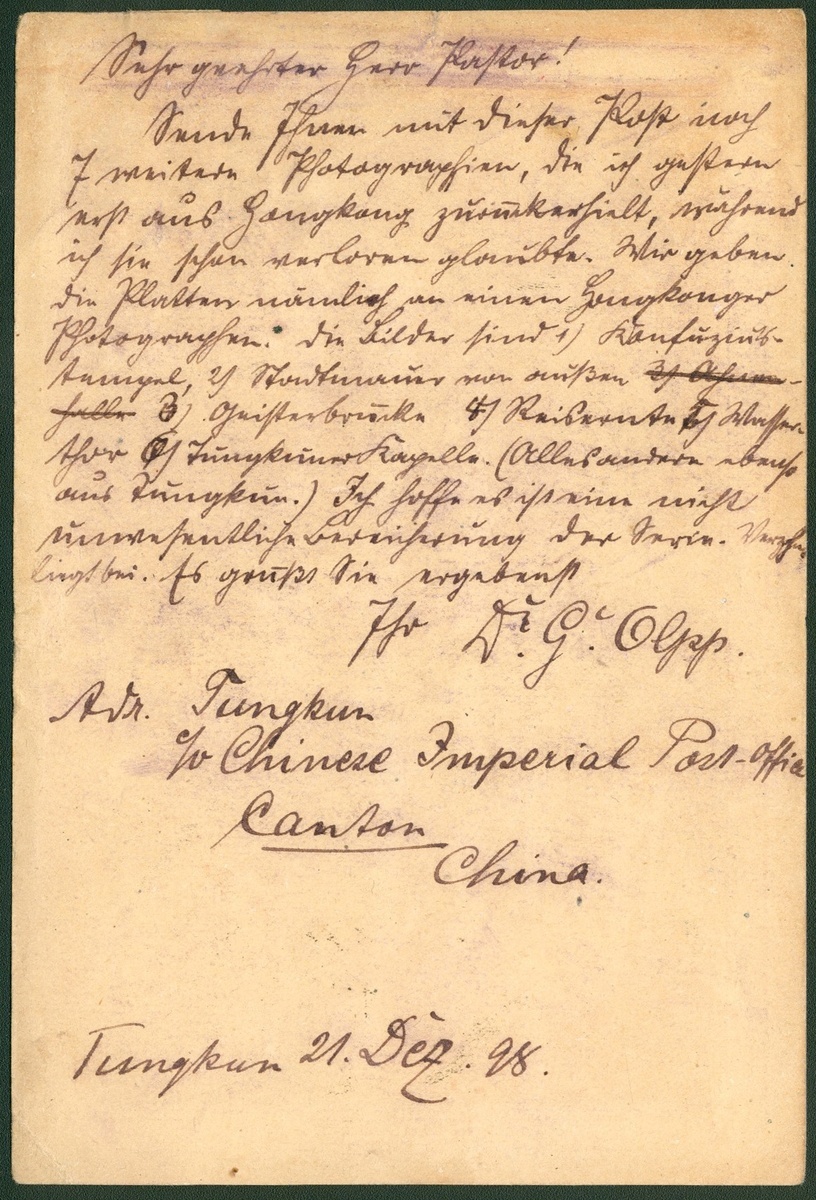 Sehr geehrter Herr Pastor!
Sende Ihnen mit dieser Post noch
7 weitere Photographien, die ich gestern
erst aus Hongkong zurückerhielt, während
ich sie schon verloren glaubte. Wir geben
die Platten nämlich an einen Hongkonger
Photographen. Die Bilder sind 1) Konfuzius-
tempel, 2) Stadtmauer von außen 3) Ahnen-
halle 3) Geisterbrücke 4) Reisernte 5) Wasser-
thor 6) Tungkuner Kapelle. (Alles andere ebenso
aus Tungkun.) Ich hoffe es ist eine nicht
unwesentliche Bereicherung der Serie.
liegt bei. Es grüßt Sie ergebenst
Ihr Dr. G. Olpp.
Adr. Tungkun
c/o Chinese Imperial Post-Office
Canton
China.
Tungkun 21. Dez. 98.